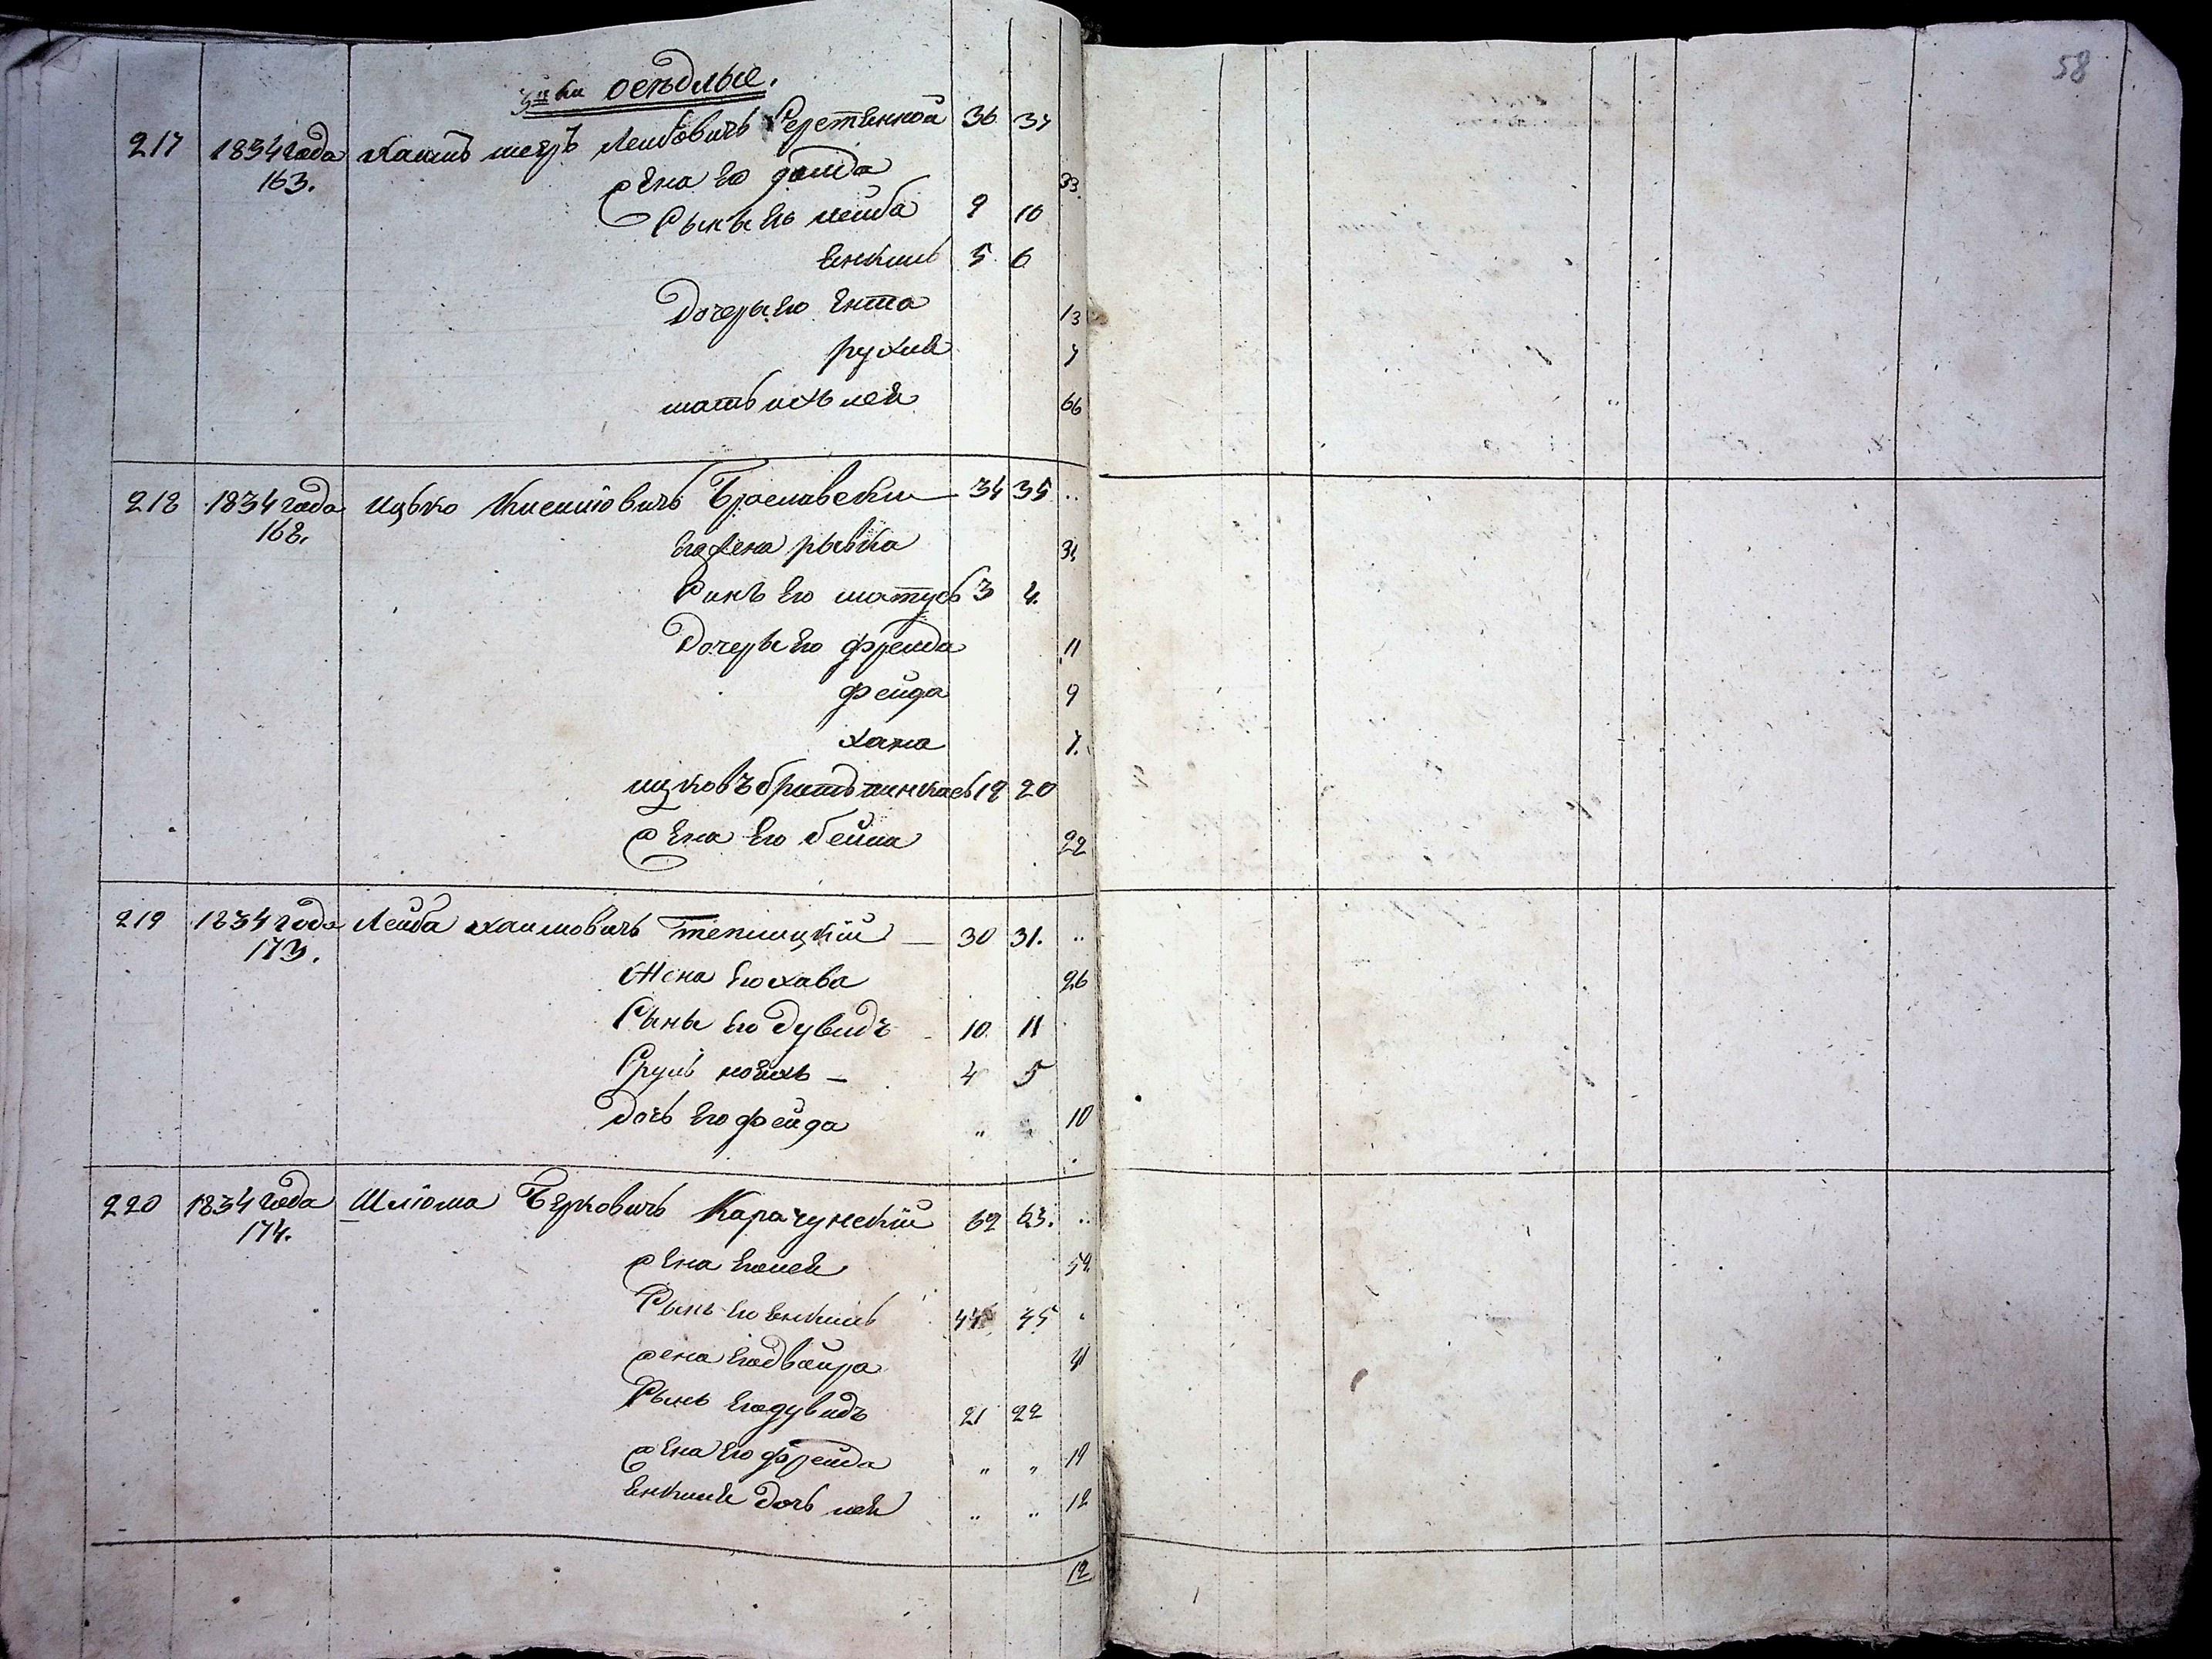 58
осѣдлые.
217 1834 года Хаимъ мееръ Лейбовичъ 36 37
163. Жена его 33.
Сыны его лейба 9 10
Енкиль 5 6
Дочеры его Ента 13
рухля 7
мать ихъ лея 66
218 1834 года Ицько Браславскій 34 35 ..
168. его жена рывка 34
Синъ его матусъ 3 4.
Дочеры его фрейда 11
фейга 9
хана 7.
ицковъ братъ пинкасъ 19 20
жена его бейла 22
219 1834 года Лейба хаимовичъ Теплицкій — 30 31. ..
173. Жена его хава 26
Сыны его дувидъ 10. 11
Сруль — 4 5
дочь его фейга „ 10
220 1834 года Шлiома Берковичъ Карачунскій 62 63. ..
174. жена его лея 52
Сынъ его енкиль 44 45
жена его двойра 41
Сынъ его дувидъ 21 22
жена его фрейда „ „ 19
Енкиля дочь лея „ „ 12
12